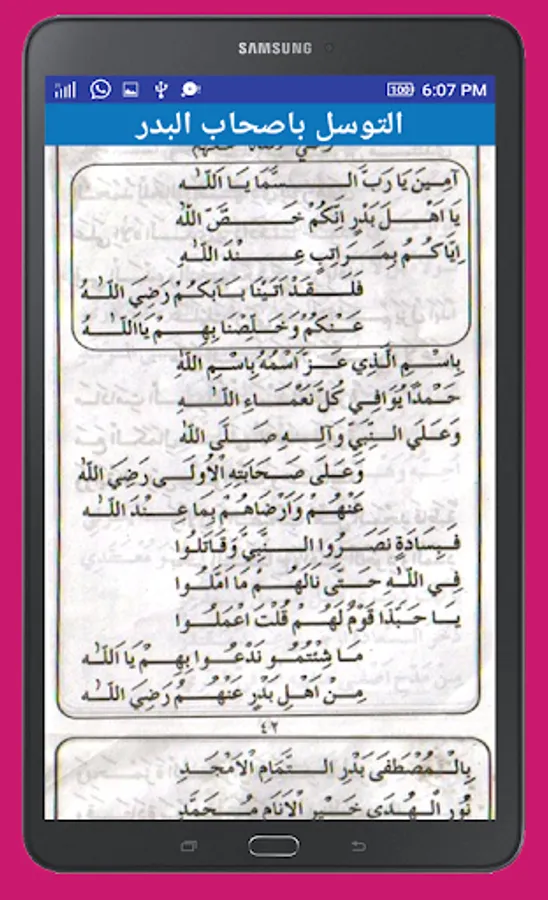 SAMSUNG
100 6:07 PM
التوسل باصحاب البدر
آمِينَ يَا رَبَّ السَّمَا يَا اَللّٰه
يَا اَهْلَ بَدْرٍ اِنَّكُمْ خَصَّ اللّٰه
اِيَّاكُمُ بِمَرَاتِبٍ عِنْدَ اللّٰهِ
فَلَقَدْ اَتَيْنَا بَابَكُمْ رَضِيَ اللّٰهُ
عَنْكُمْ وَخَلِّصْنَا بِهِمْ يَااَللّٰهُ
بِاسْمِ الَّذِي عَزَّ اسْمُهُ بِاسْمِ اللّٰهِ
حَمْدًا يُوَافِي كُلَّ نَعْمَاءِ اللّٰهِ
وَعَلَى النَّبِيِّ وَآلِهِ صَلَّى اللّٰه
وَعَلَى صَحَابَتِهِ الْاُولَى رَضِيَ اللّٰه
عَنْهُمْ وَاَرْضَاهُمْ بِمَا عِنْدَ اللّٰه
فَبِسَادَةٍ نَصَرُوا النَّبِيَّ وَقَاتَلُوا
فِي اللّٰهِ حَتَّى نَالَهُمْ مَا اَمَلُوا
يَا حَبَّذَا قَوْمٌ لَهُمْ قُلْتَ اعْمَلُوا
مَا شِئْتُمُو نَدْعُوا بِهِمْ يَا اَللّٰه
مِنْ اَهْلِ بَدْرٍ عَنْهُمُ رَضِيَ اللّٰه
٤٢
بِالْمُصْطَفَى بَدْرِ التَّمَامِ الْاَمْجَدِ
نُورِ الْهُدَى خَيْرِ الْاَنَامِ مُحَمَّدٍ